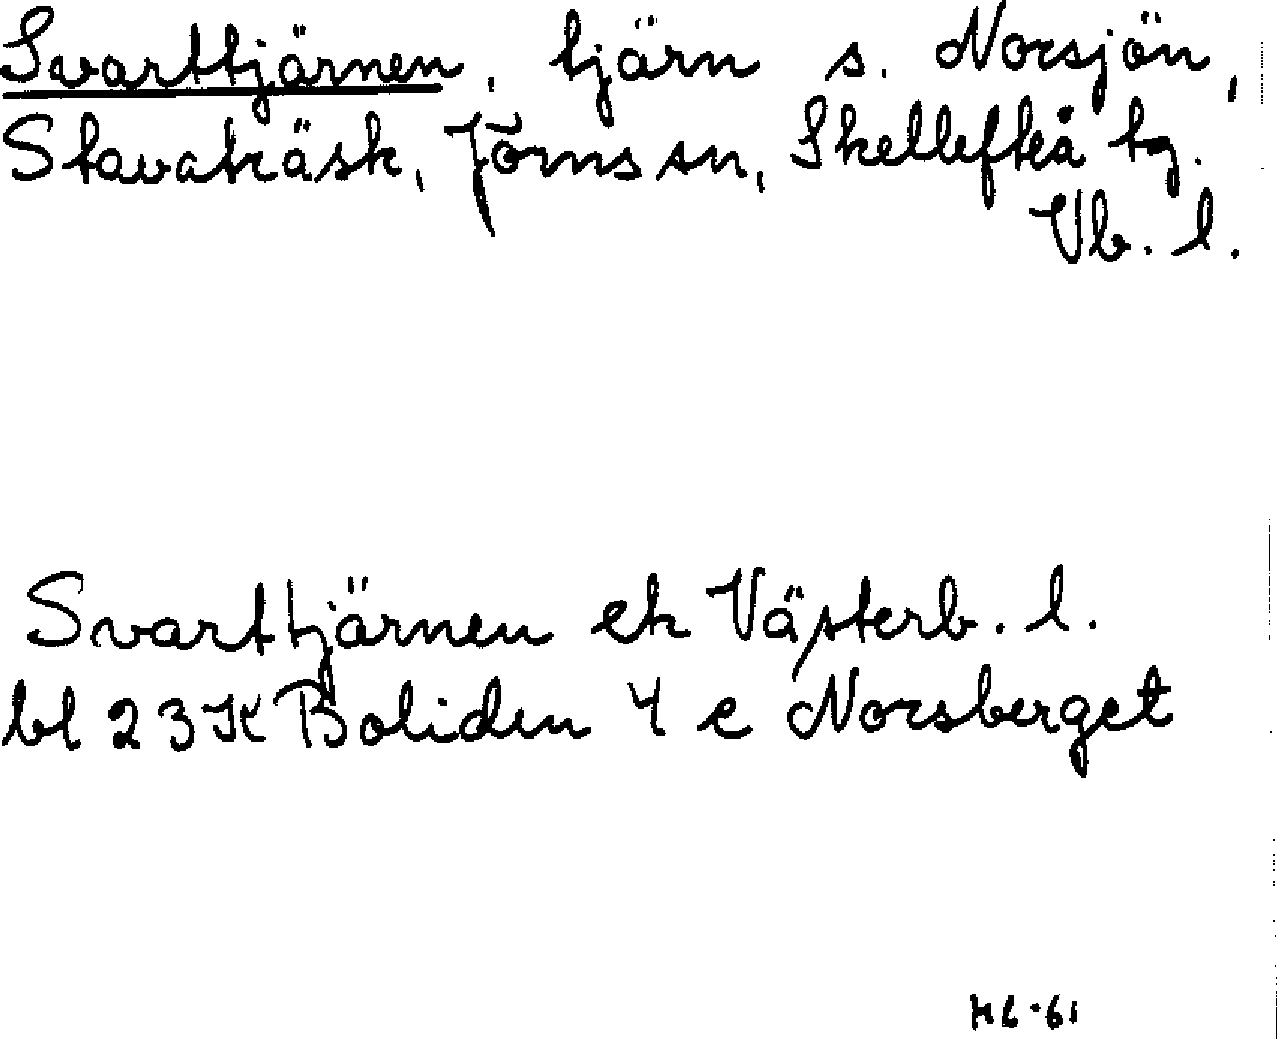 Svarttjärnen, tjärn s. Norsjön,
Stavaträsk, Jörns sn, Skellefteå tg.
Vb. l.
Svarttjärnen ek Västerb. l.
bl 23K Boliden 4 e Norsberget